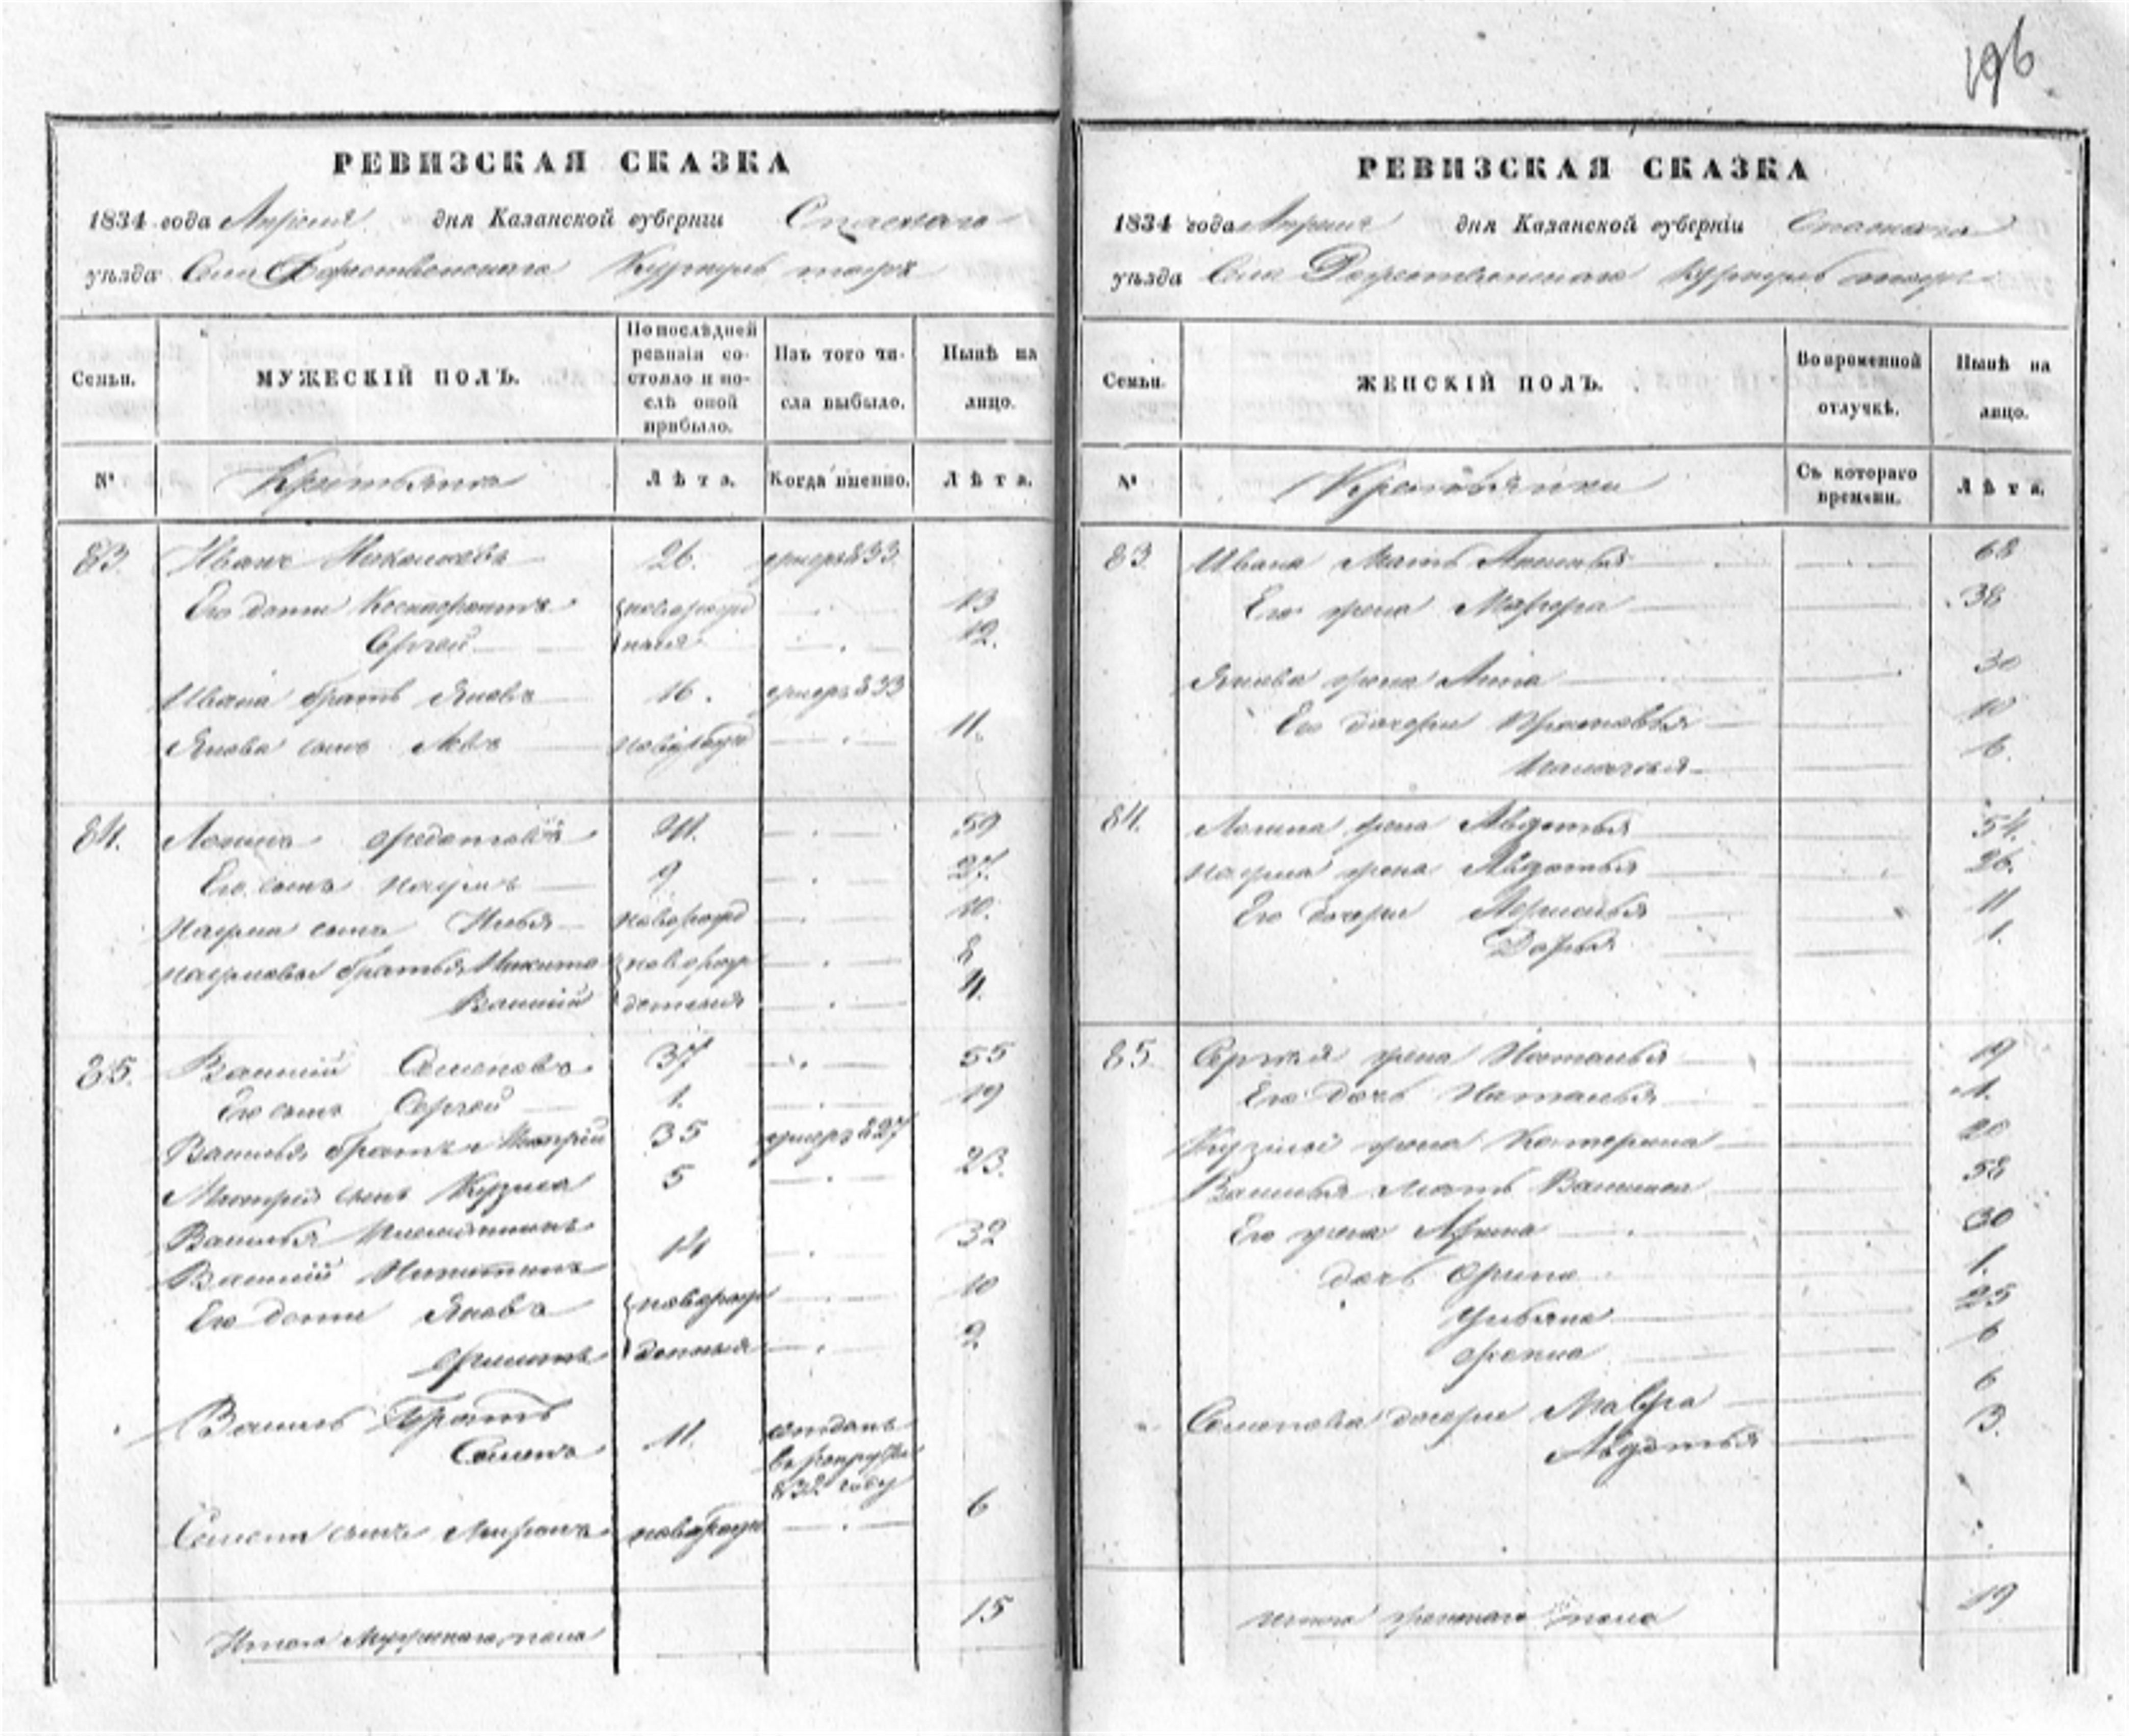 196
РЕВИЗСКАЯ СКАЗКА
1834 года Апреля дня Казанской губерніи Спаскаго
уѣзда Села Рожественскаго Куркуль тожъ
Семьи.
МУЖЕСКІЙ ПОЛЪ.
По послѣдней
ревизіи со-
стояло и по-
слѣ оной
прибыло.
Изъ того чи-
сла выбыло.
Нынѣ на
лицо.
№
Крестьяна
Лѣта.
Когда именно.
Лѣта.
83. Иванъ 26. умеръ 833
Его дети новорож 13
Сергей ноя 12.
Ивана братъ Яковъ 16. умеръ 833
Якова сынъ Левъ новорож 11.
84. Логинъ Федотовъ 41. 59
Его сынъ Наумъ 9. 27.
Наума сынъ Илья новорож 10.
Наумовы братья Никита новорож 8
Василий денныя 4.
85. Василий Семеновъ 37 55
Его сынъ Сергей 1. 19
Василья братъ Митрий 35 умеръ 827
Митрия сынъ Кузма 5 23.
Василья племянникъ
Василий Никитинъ 14 32
Его дети Яковъ новорож 10
денныя 2
Василья братъ
Семенъ 11. отданъ
в рекруты
832 году
Семена сынъ Миронъ новорож 6
Итого Мужескаго пола 15
РЕВИЗСКАЯ СКАЗКА
1834 года Апреля дня Казанской губерніи Спаскаго
уѣзда Села Рожественскаго Куркуль тожъ
Семьи.
ЖЕНСКІЙ ПОЛЪ.
Во временной
отлучкѣ.
Нынѣ на
лицо.
№
Крестьянки
Съ котораго
времени.
Лѣта.
83. Ивана Мать 68
Его жена Марфа 38
Якова жена Анна 30
Его дочери Прасковья 10
Палагея 6.
84. Логина жена Авдотья 54.
Наума жена Авдотья 26.
Его дочери 11
Дарья 1.
85. Сергея жена Наталья 19
Его дочь Наталья 1.
Кузмы жена Катерина 20
Василья Мать Василиса 58
Его жена 30
дочь Орина 1.
Ульяна 25
6
Семенова дочери Мавра 6
Авдотья 3.
Итого женскаго пола 19